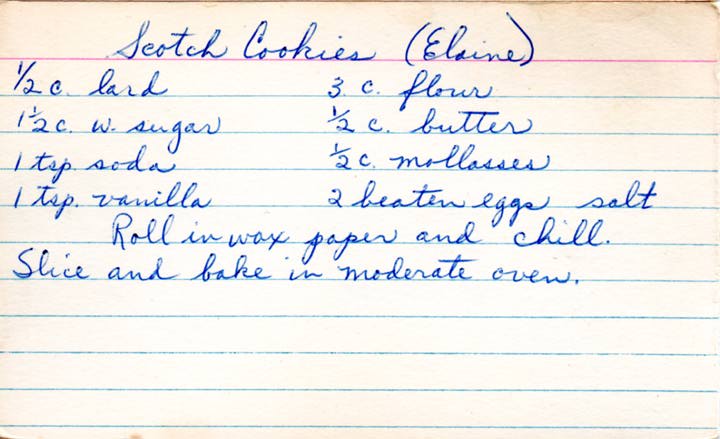 Scotch Cookies (Elaine)
1/2 c. lard 3 c. flour
1 1/2 c. w. sugar 1/2 c. butter
1 tsp. soda 1/2 c. mollasses
1 tsp. vanilla 2 beaten eggs salt
Roll in wax paper and chill.
Slice and bake in moderate oven.